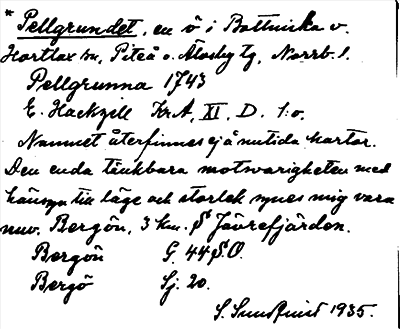 * Pellgrundet, en ö i Bottniska v.
Hortlax sn, Piteå o. Älvsby tg, Norrb. l.
Pellgrunna 1743
E. Hackzell Kr.A, XI, D. 1:o.
Namnet återfinnes ej å nutida kartor.
Den enda tänkbara motsvarigheten med
hänsyn till läge och storlek synes mig vara
nuv. Bergön, 3 km. S Jävrefjärden.
Bergön G. 44 S.O.
Bergö Sj. 20.
S. Sundqvist 1935.